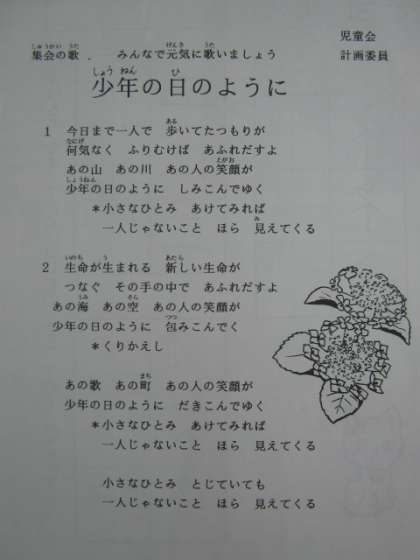 集会の歌．　みんなで元気に歌いましょう
児童会
計画委員
少年の日のように
1　今日まで一人で　歩いてたつもりが
何気なく　ふりむけば　あふれだすよ
あの山　あの川　あの人の笑顔が
少年の日のように　しみこんでゆく
＊小さなひとみ　あけてみれば
一人じゃないこと　ほら　見えてくる
2　生命が生まれる　新しい生命が
つなぐ　その手の中で　あふれだすよ
あの海　あの空　あの人の笑顔が
少年の日のように　包みこんでく
＊くりかえし
あの歌　あの町　あの人の笑顔が
少年の日のように　だきこんでゆく
＊小さなひとみ　あけてみれば
一人じゃないこと　ほら　見えてくる
小さなひとみ　とじていても
一人じゃないこと　ほら　見えてくる